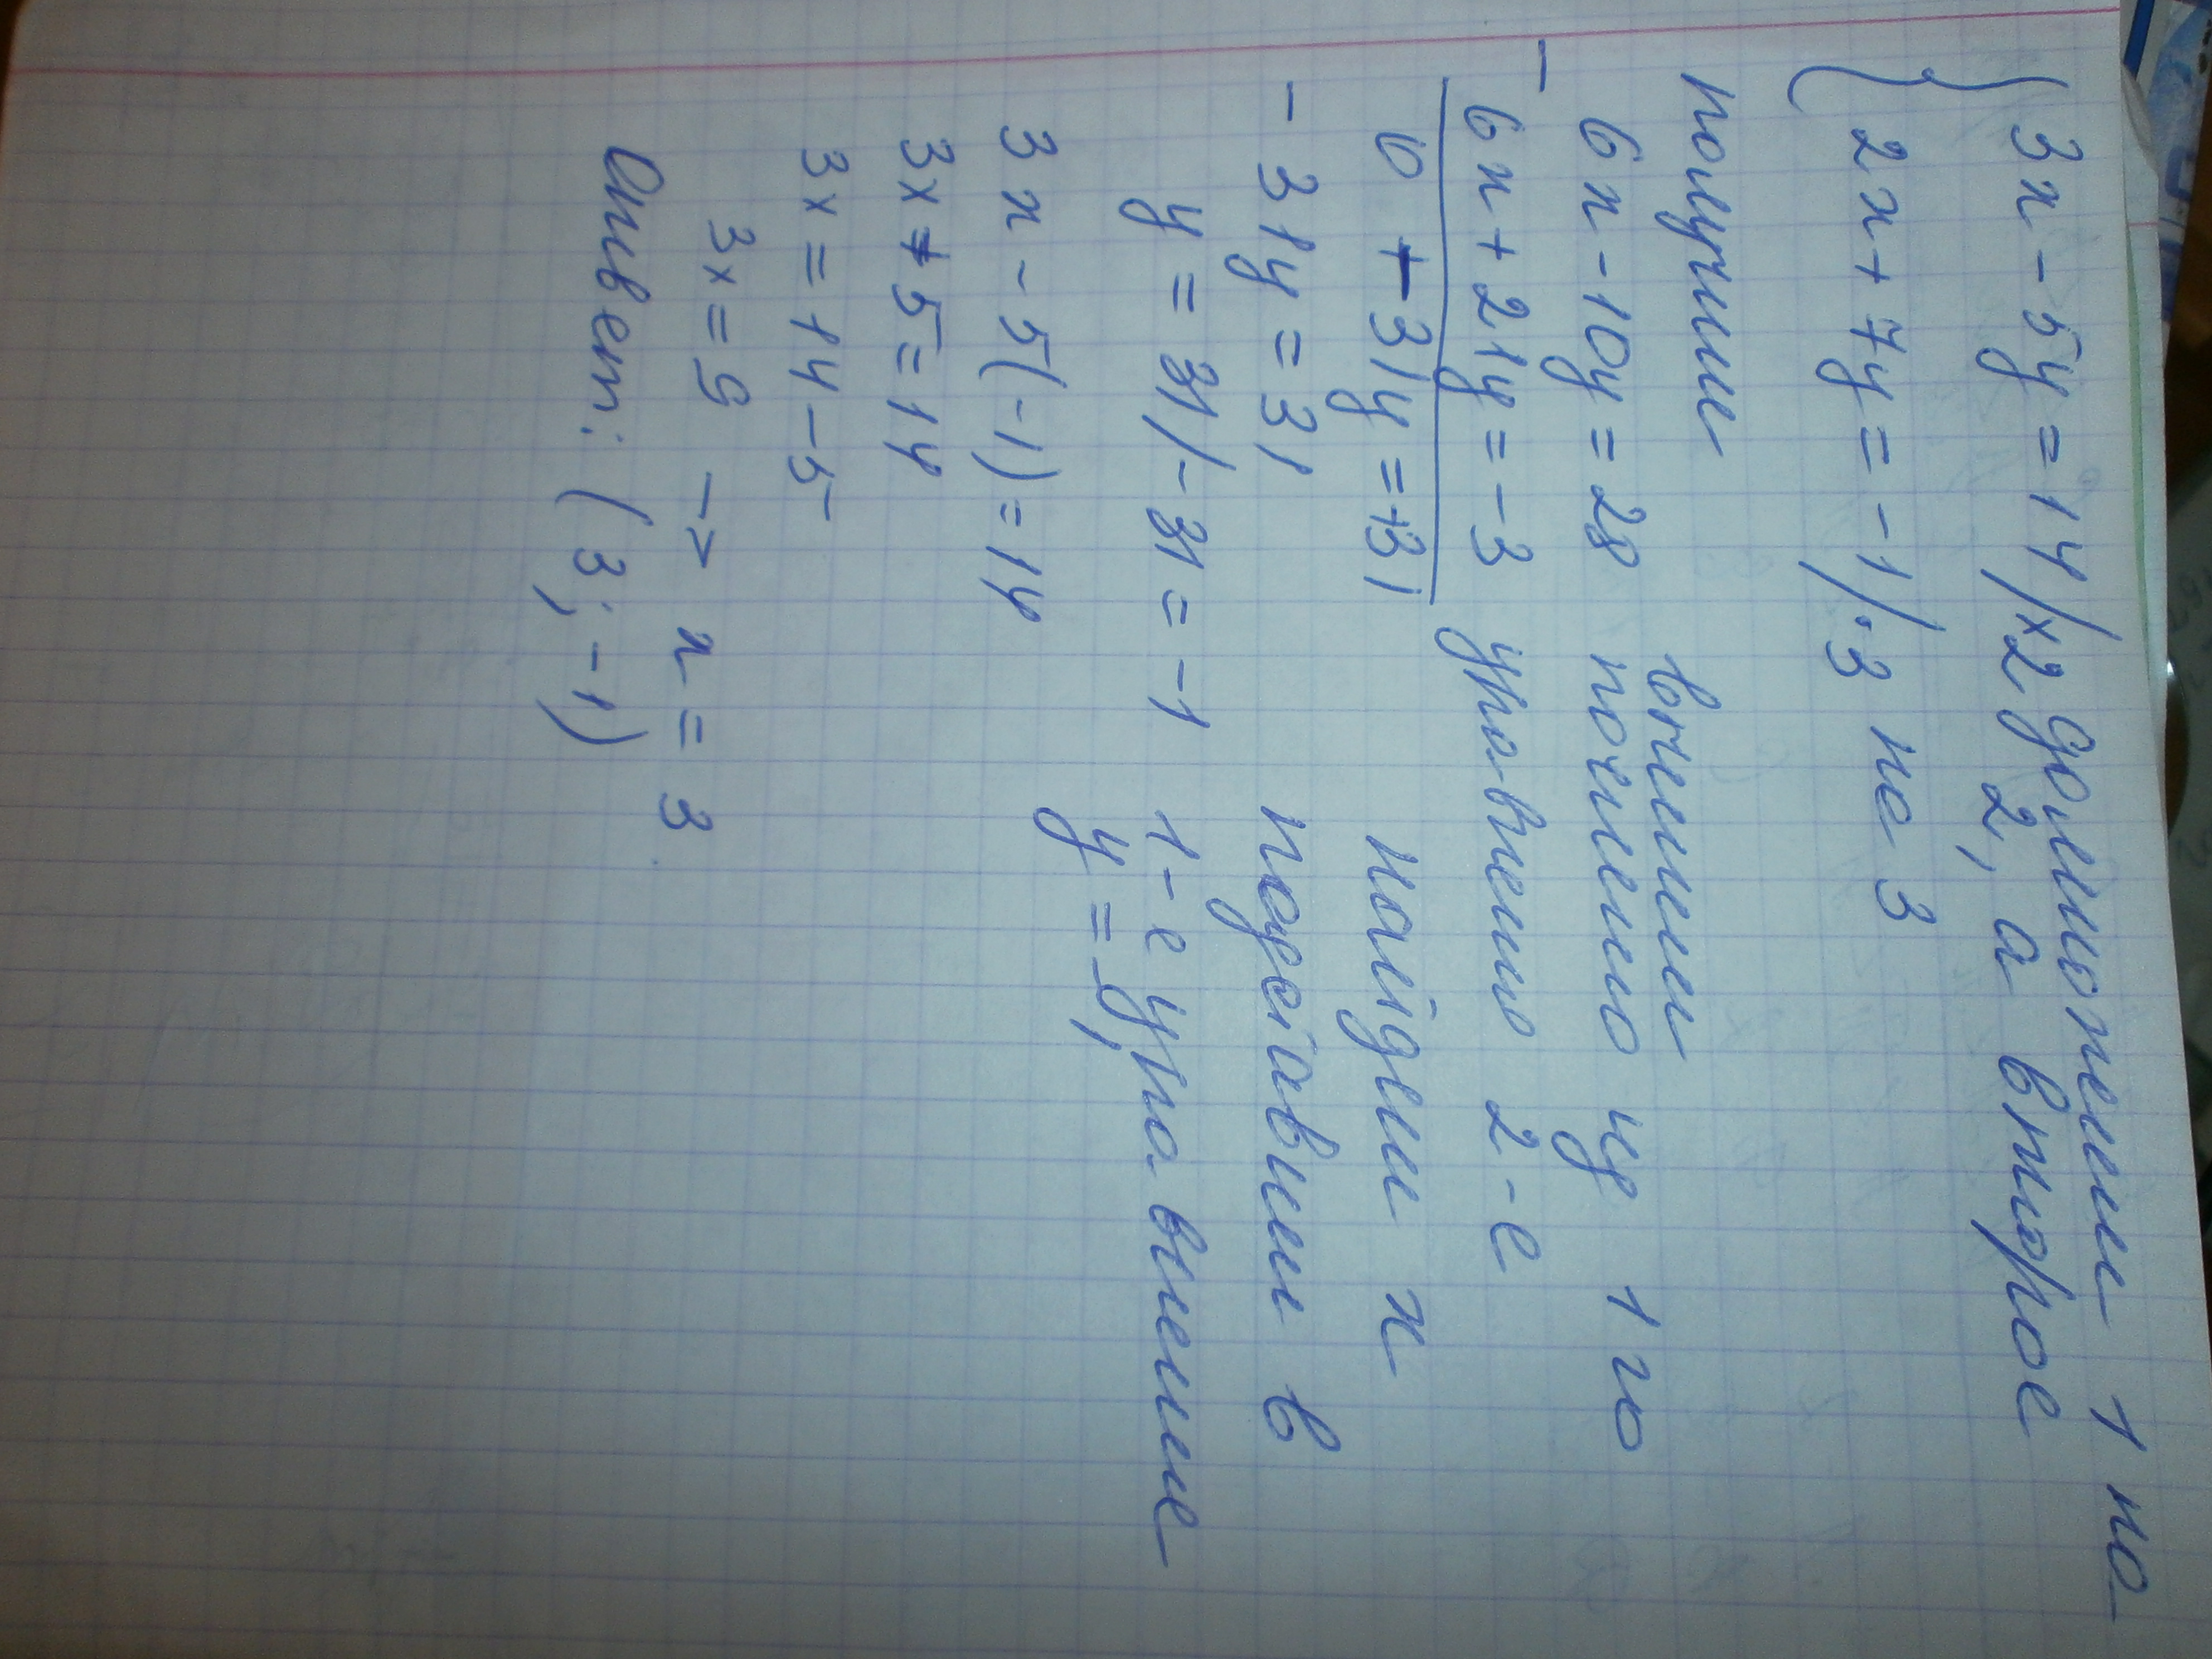 3x - 5y = 14 /x2 домножим 1 на
2, а второе
2x + 7y = -1 /·3 на 3
получим
6x - 10y = 28 вычтем
почлено из 1 го
- 6x + 21y = -3 уравнению 2-е
0 - 31y = +31 найдем x
-31y = 31 подставим в
y = 31/-31 = -1 1-е уравнение
y = -1
3x - 5(-1) = 14
3x + 5 = 14
3x = 14 - 5
3x = 9 -> x = 3
Ответ: (3; -1)